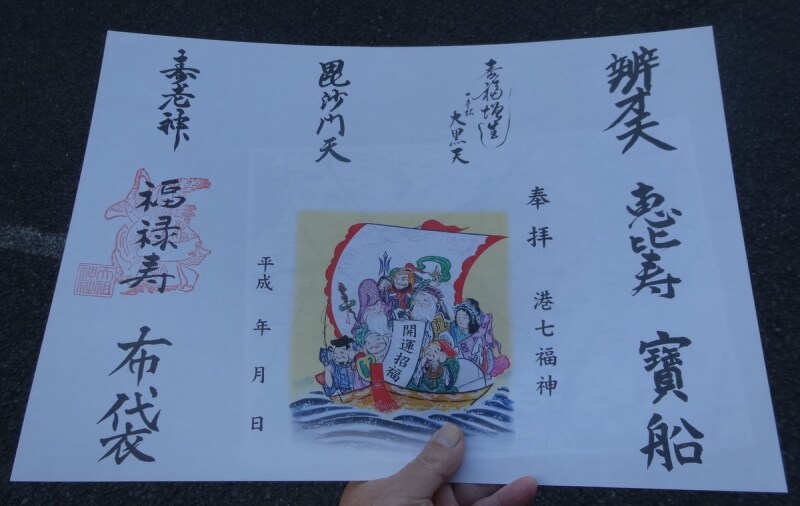 辨才天
恵比寿
寶船
奉拝 港七福神
大黒天
毘沙門天
開運招福
平成 年 月 日
寿老神
福禄寿
布袋